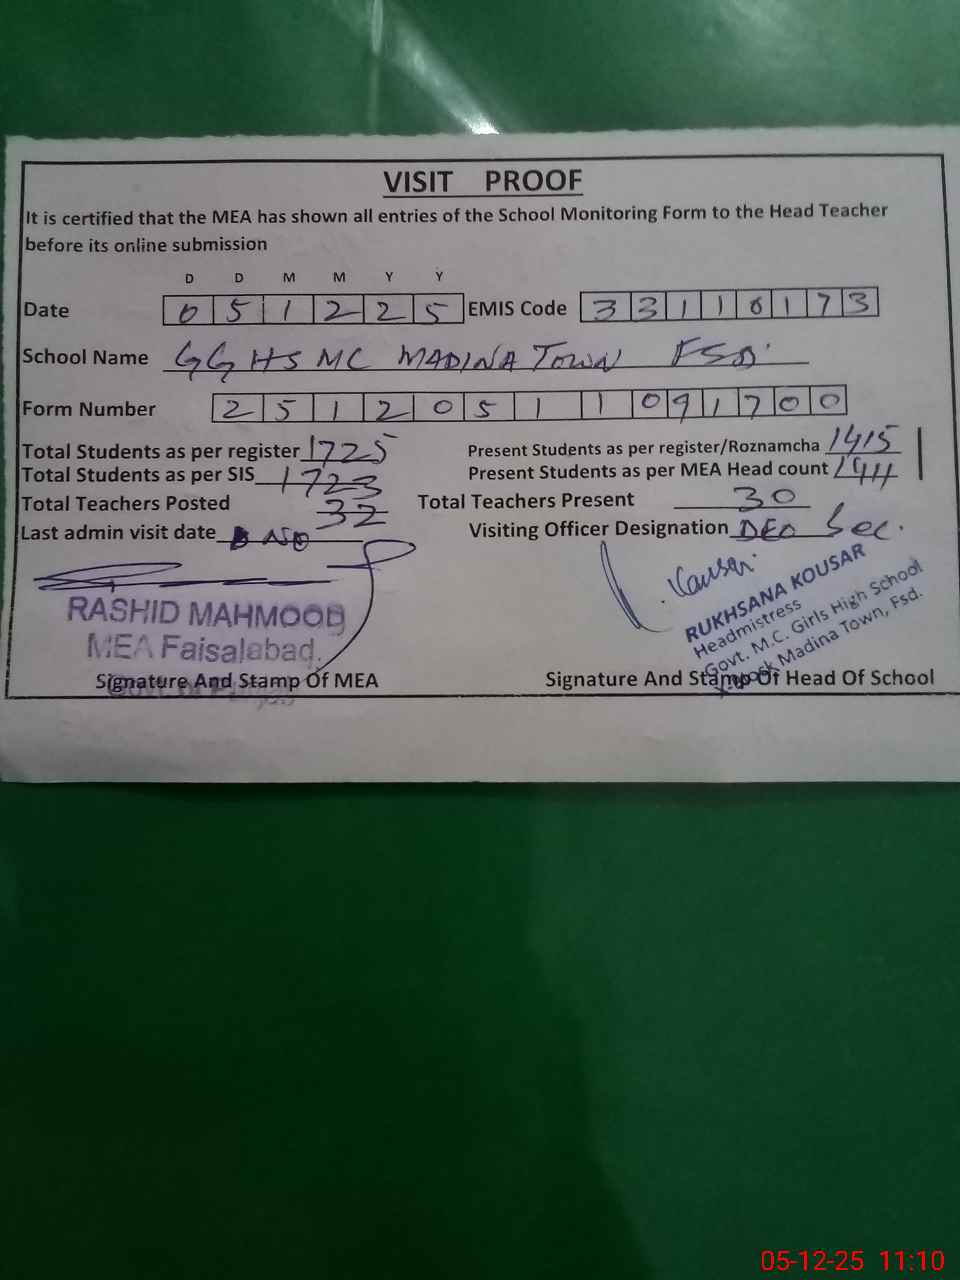 VISIT PROOF
It is certified that the MEA has shown all entries of the School Monitoring Form to the Head Teacher
before its online submission
D D M M Y Y
Date 0 5 1 2 2 5 EMIS Code 3 3 1 1 0 1 7 3
School Name GGHS MC MADINA TOWN FSD
Form Number 2 5 1 2 0 5 1 1 0 9 1 7 0 0
Total Students as per register 1725 Present Students as per register/Roznamcha 1415
Total Students as per SIS 1723 Present Students as per MEA Head count
Total Teachers Posted 32 Total Teachers Present 30
Last admin visit date Visiting Officer Designation DEO Sec.
Kausar
RASHID MAHMOOD
MEA Faisalabad.
RUKHSANA KOUSAR
Headmistress
Govt. M.C. Girls High School
Madina Town, Fsd.
Signature And Stamp Of MEA Signature And Stamp Of Head Of School
05-12-25 11:10